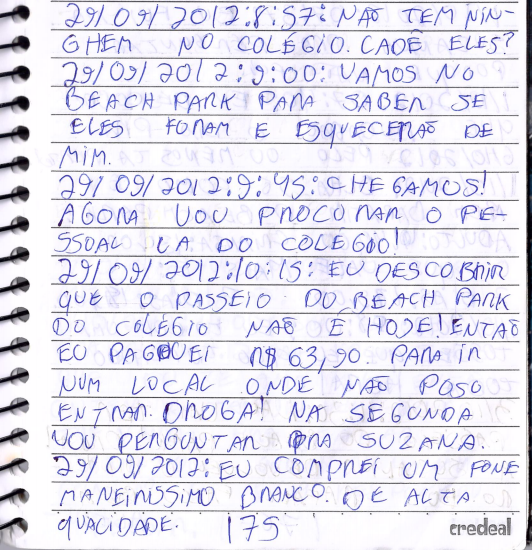 29/09/2012:8:57: NÃO TEM NIN-
GHEM NO COLÉGIO. CADÊ ELES?
29/09/2012:9:00: VAMOS NO
BEACH PARK PARA SABER SE
ELES FORAM E ESQUECERÃO DE
MIM.
29/09/2012:9:45: CHEGAMOS!
AGORA VOU PROCORAR O PE-
SSOAL LA DO COLEGIO!
29/09/2012:10:15: EU DESCOBRIR
QUE O PASSEIO DO BEACH PARK
DO COLÉGIO NÃO É HOJE! ENTÃO
EU PAGUEI R$ 63,90. PARA IR
NUM LOCAL ONDE NÃO POSO
ENTRAR. DROGA! NA SEGUNDA
VOU PERGUNTAR PRA SUZANA.
29/09/2012: EU COMPREI UM FONE
MANEIRISSIMO BRANCO. DE ALTA
QUALIDADE. 175
credeal